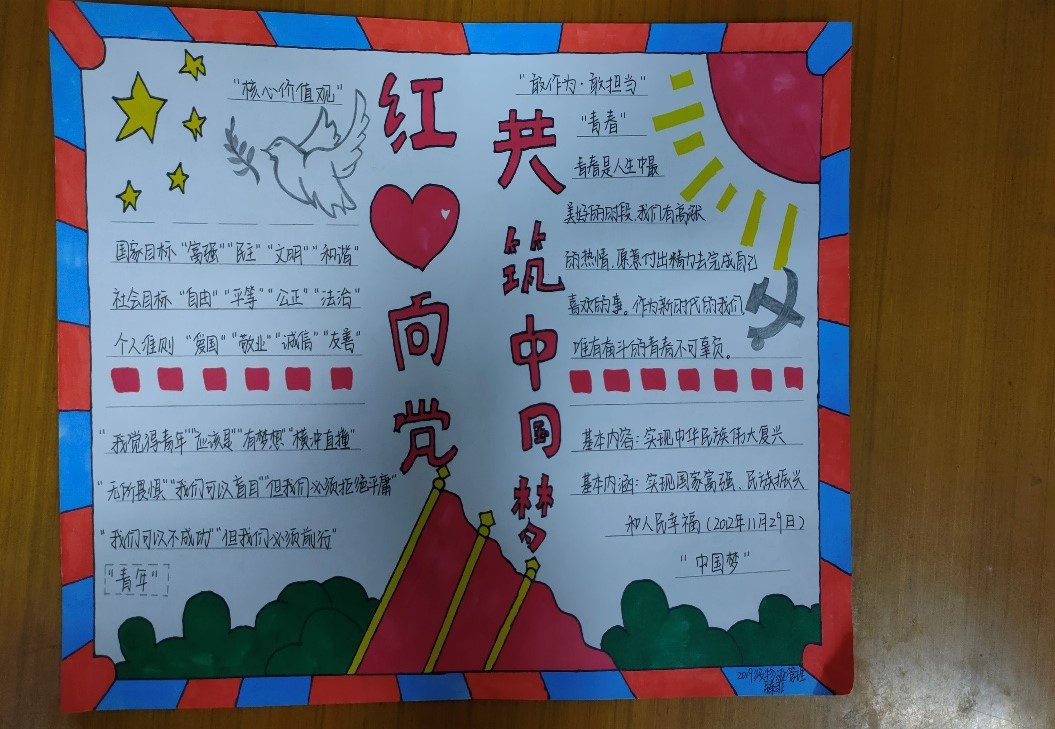 红心向党
共筑中国梦
"核心价值观"
国家目标 "富强" "民主" "文明" "和谐"
社会目标 "自由" "平等" "公正" "法治"
个人准则 "爱国" "敬业" "诚信" "友善"
"我觉得青年" "应该是" "有梦想" "横冲直撞"
"无所畏惧" "我们可以盲目" "但我们必须拒绝平庸"
"我们可以不成功" "但我们必须前行"
"青年"
"敢作为·敢担当"
"青春"
青春是人生中最
美好的时段,我们有高涨
的热情,愿意付出精力去完成自己
喜欢的事。作为新时代的我们,
唯有奋斗的青春不可辜负。
基本内容:实现中华民族伟大复兴
基本内涵:实现国家富强、民族振兴
和人民幸福(2012年11月29日)
"中国梦"
2019级物业管理